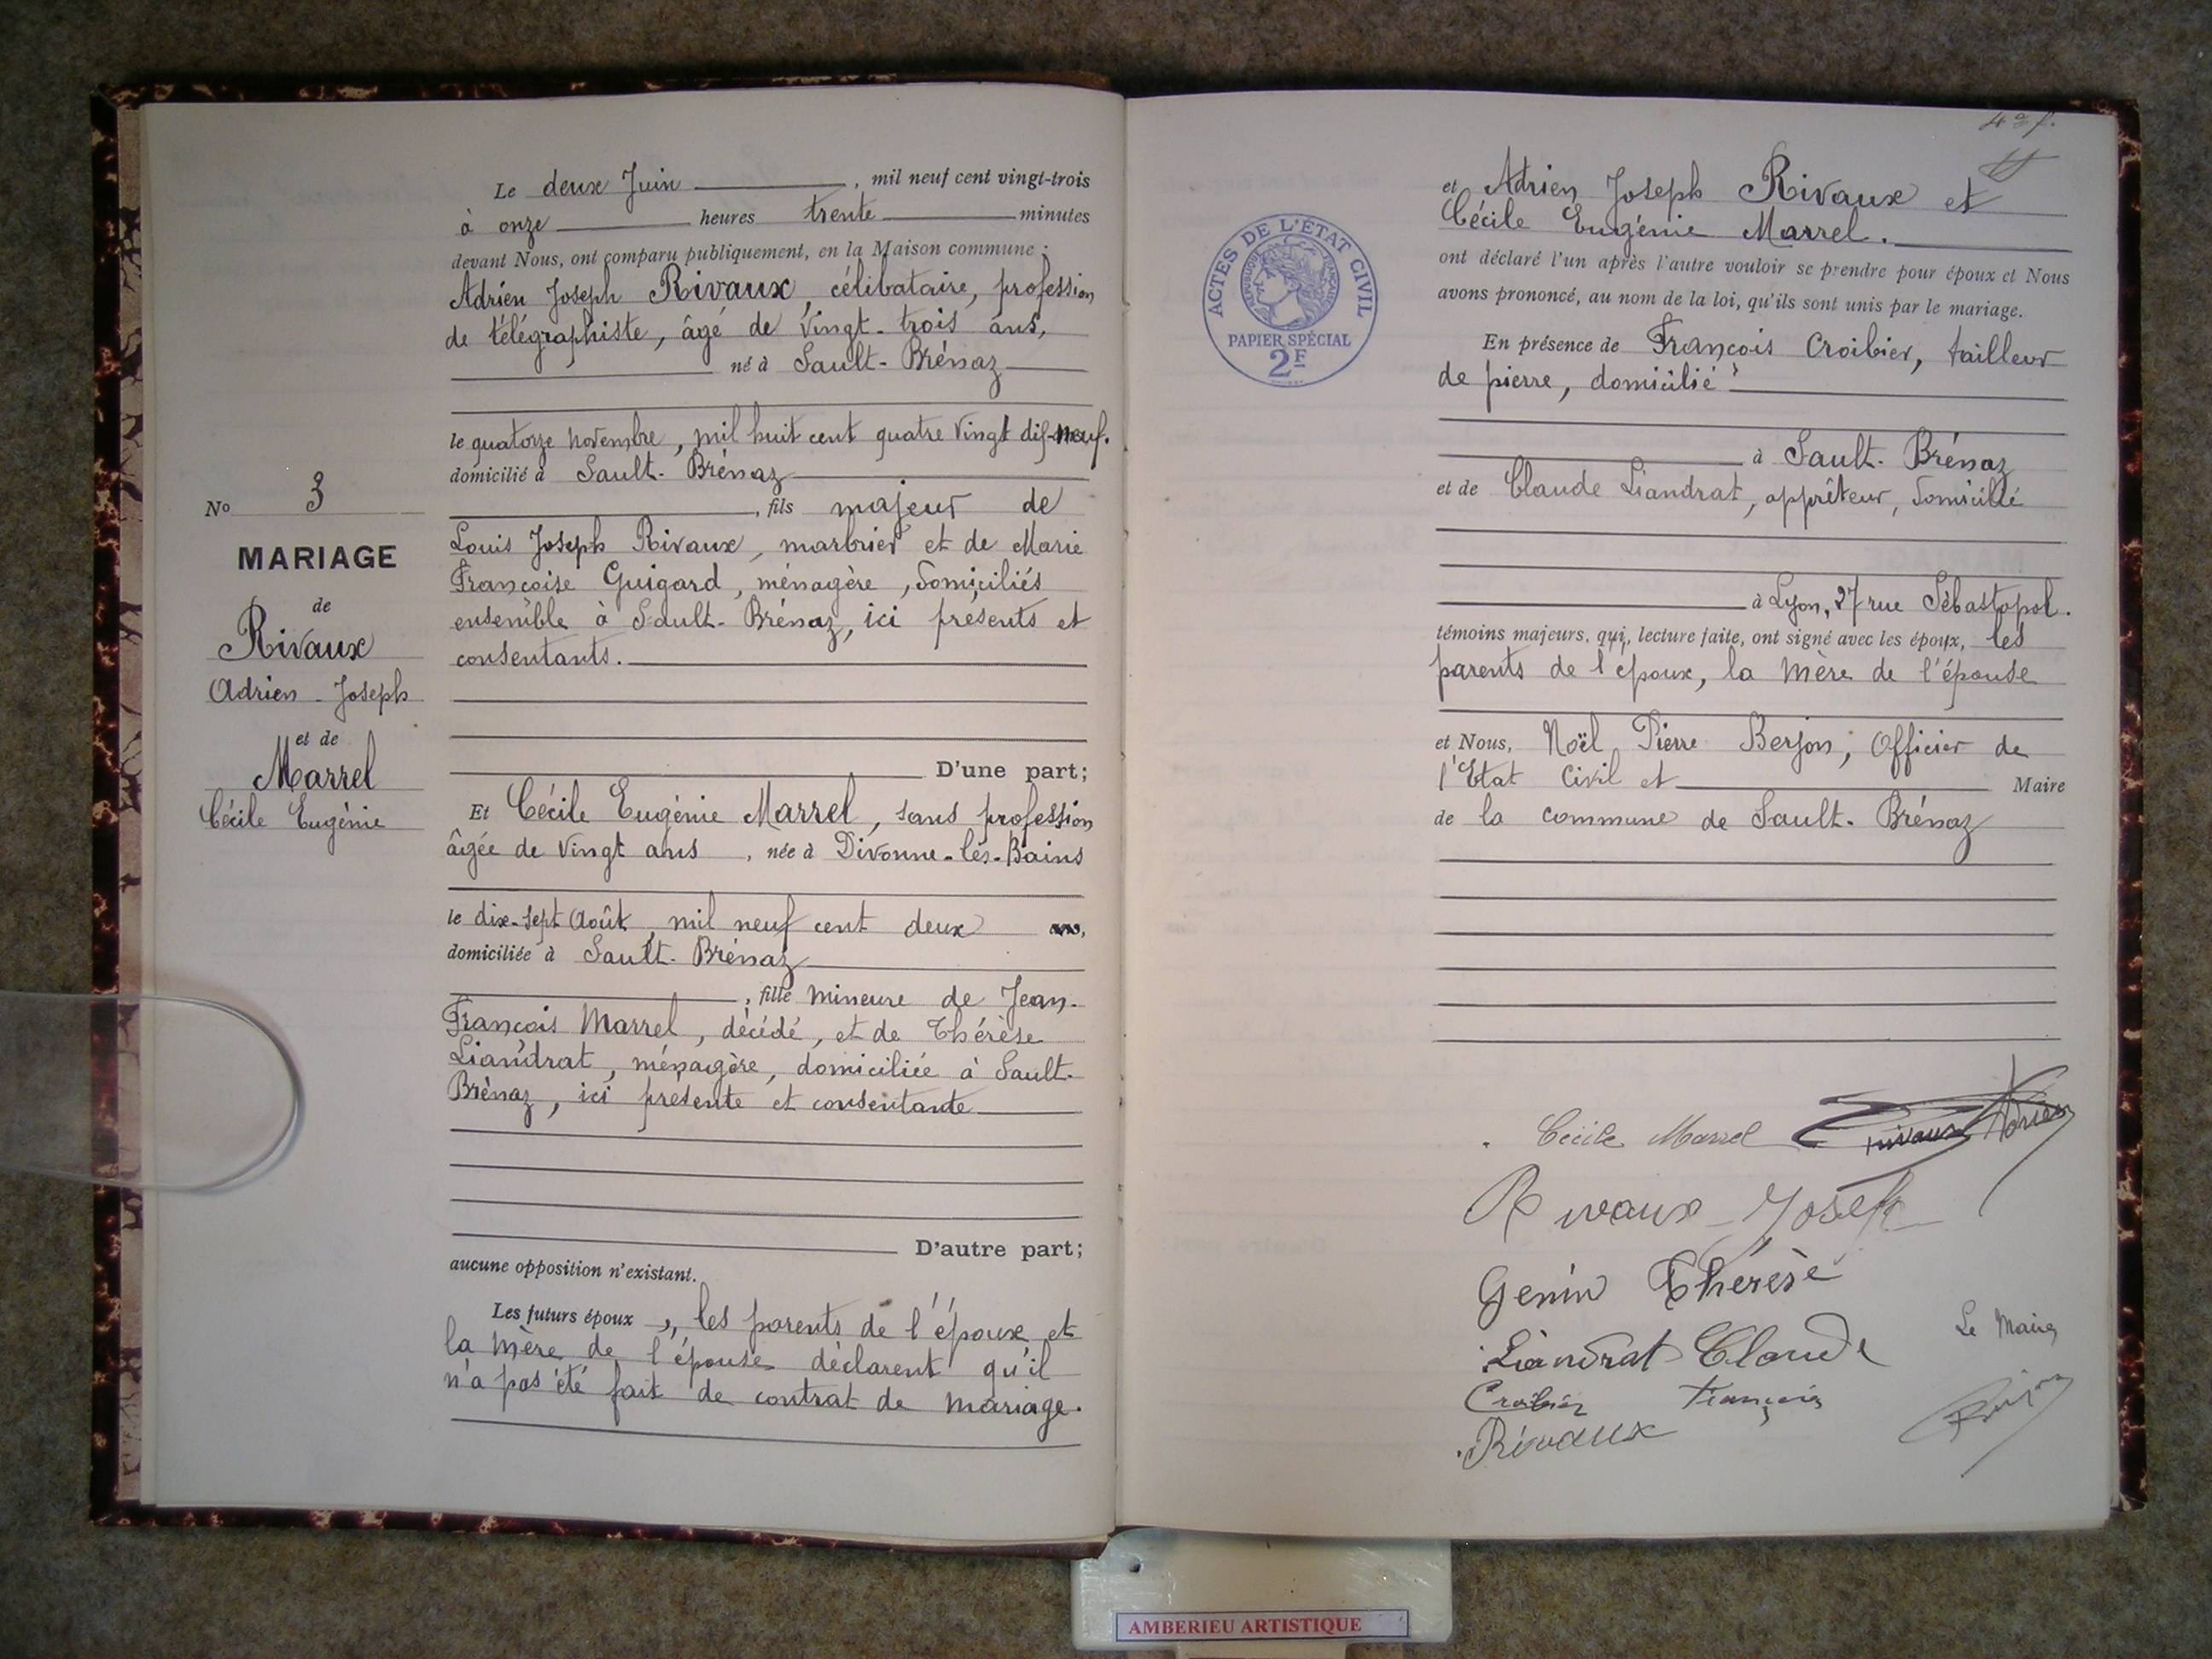 Le deux Juin, mil neuf cent vingt-trois
à onze heures trente minutes
devant Nous, ont comparu publiquement, en la Maison commune :
Adrien Joseph Rivaux, célibataire, profession
de télégraphiste, âgé de vingt-trois ans,
né à Sault-Brénaz
le quatorze novembre, mil huit cent quatre vingt dix-neuf.
domicilié à Sault-Brénaz
No 3
, fils majeur de
MARIAGE
Louis Joseph Rivaux, marbrier et de Marie
Françoise Guigard, ménagère, domiciliés
de
ensemble à Sault-Brénaz, ici présents et
Rivaux
consentants.
Adrien-Joseph
et de
Marrel
D'une part;
Cécile Eugénie
Et Cécile Eugénie Marrel, sans profession
âgée de vingt ans, née à Divonne-lès-Bains
le dix-sept Août, mil neuf cent deux
domiciliée à Sault-Brénaz
, fille mineure de Jean-
François Marrel, décédé, et de Thérèse
Liandrat, ménagère, domiciliée à Sault-
Brénaz, ici présente et consentante
D'autre part;
aucune opposition n'existant.
Les futurs époux, les parents de l'époux et
la mère de l'épouse déclarent qu'il
n'a pas été fait de contrat de mariage.
et Adrien Joseph Rivaux et
Cécile Eugénie Marrel.
ont déclaré l'un après l'autre vouloir se prendre pour époux et Nous
avons prononcé, au nom de la loi, qu'ils sont unis par le mariage.
ACTES DE L'ÉTAT CIVIL
RÉPUBLIQUE FRANÇAISE
PAPIER SPÉCIAL
2F
En présence de François Croibier, tailleur
de pierre, domicilié
à Sault-Brénaz
et de Claude Liandrat, apprêteur, domicilié
à Lyon, 27 rue Sébastopol.
témoins majeurs, qui, lecture faite, ont signé avec les époux, les
parents de l'époux, la mère de l'épouse
et Nous, Noël Pierre Berjon, Officier de
l'Etat Civil et Maire
de la commune de Sault-Brénaz
Cécile Marrel Rivaux Adrien
Rivaux Joseph
Genin Thérèse
Liandrat Claude
Le Maire
Croibier François
Rivaux
AMBERIEU ARTISTIQUE